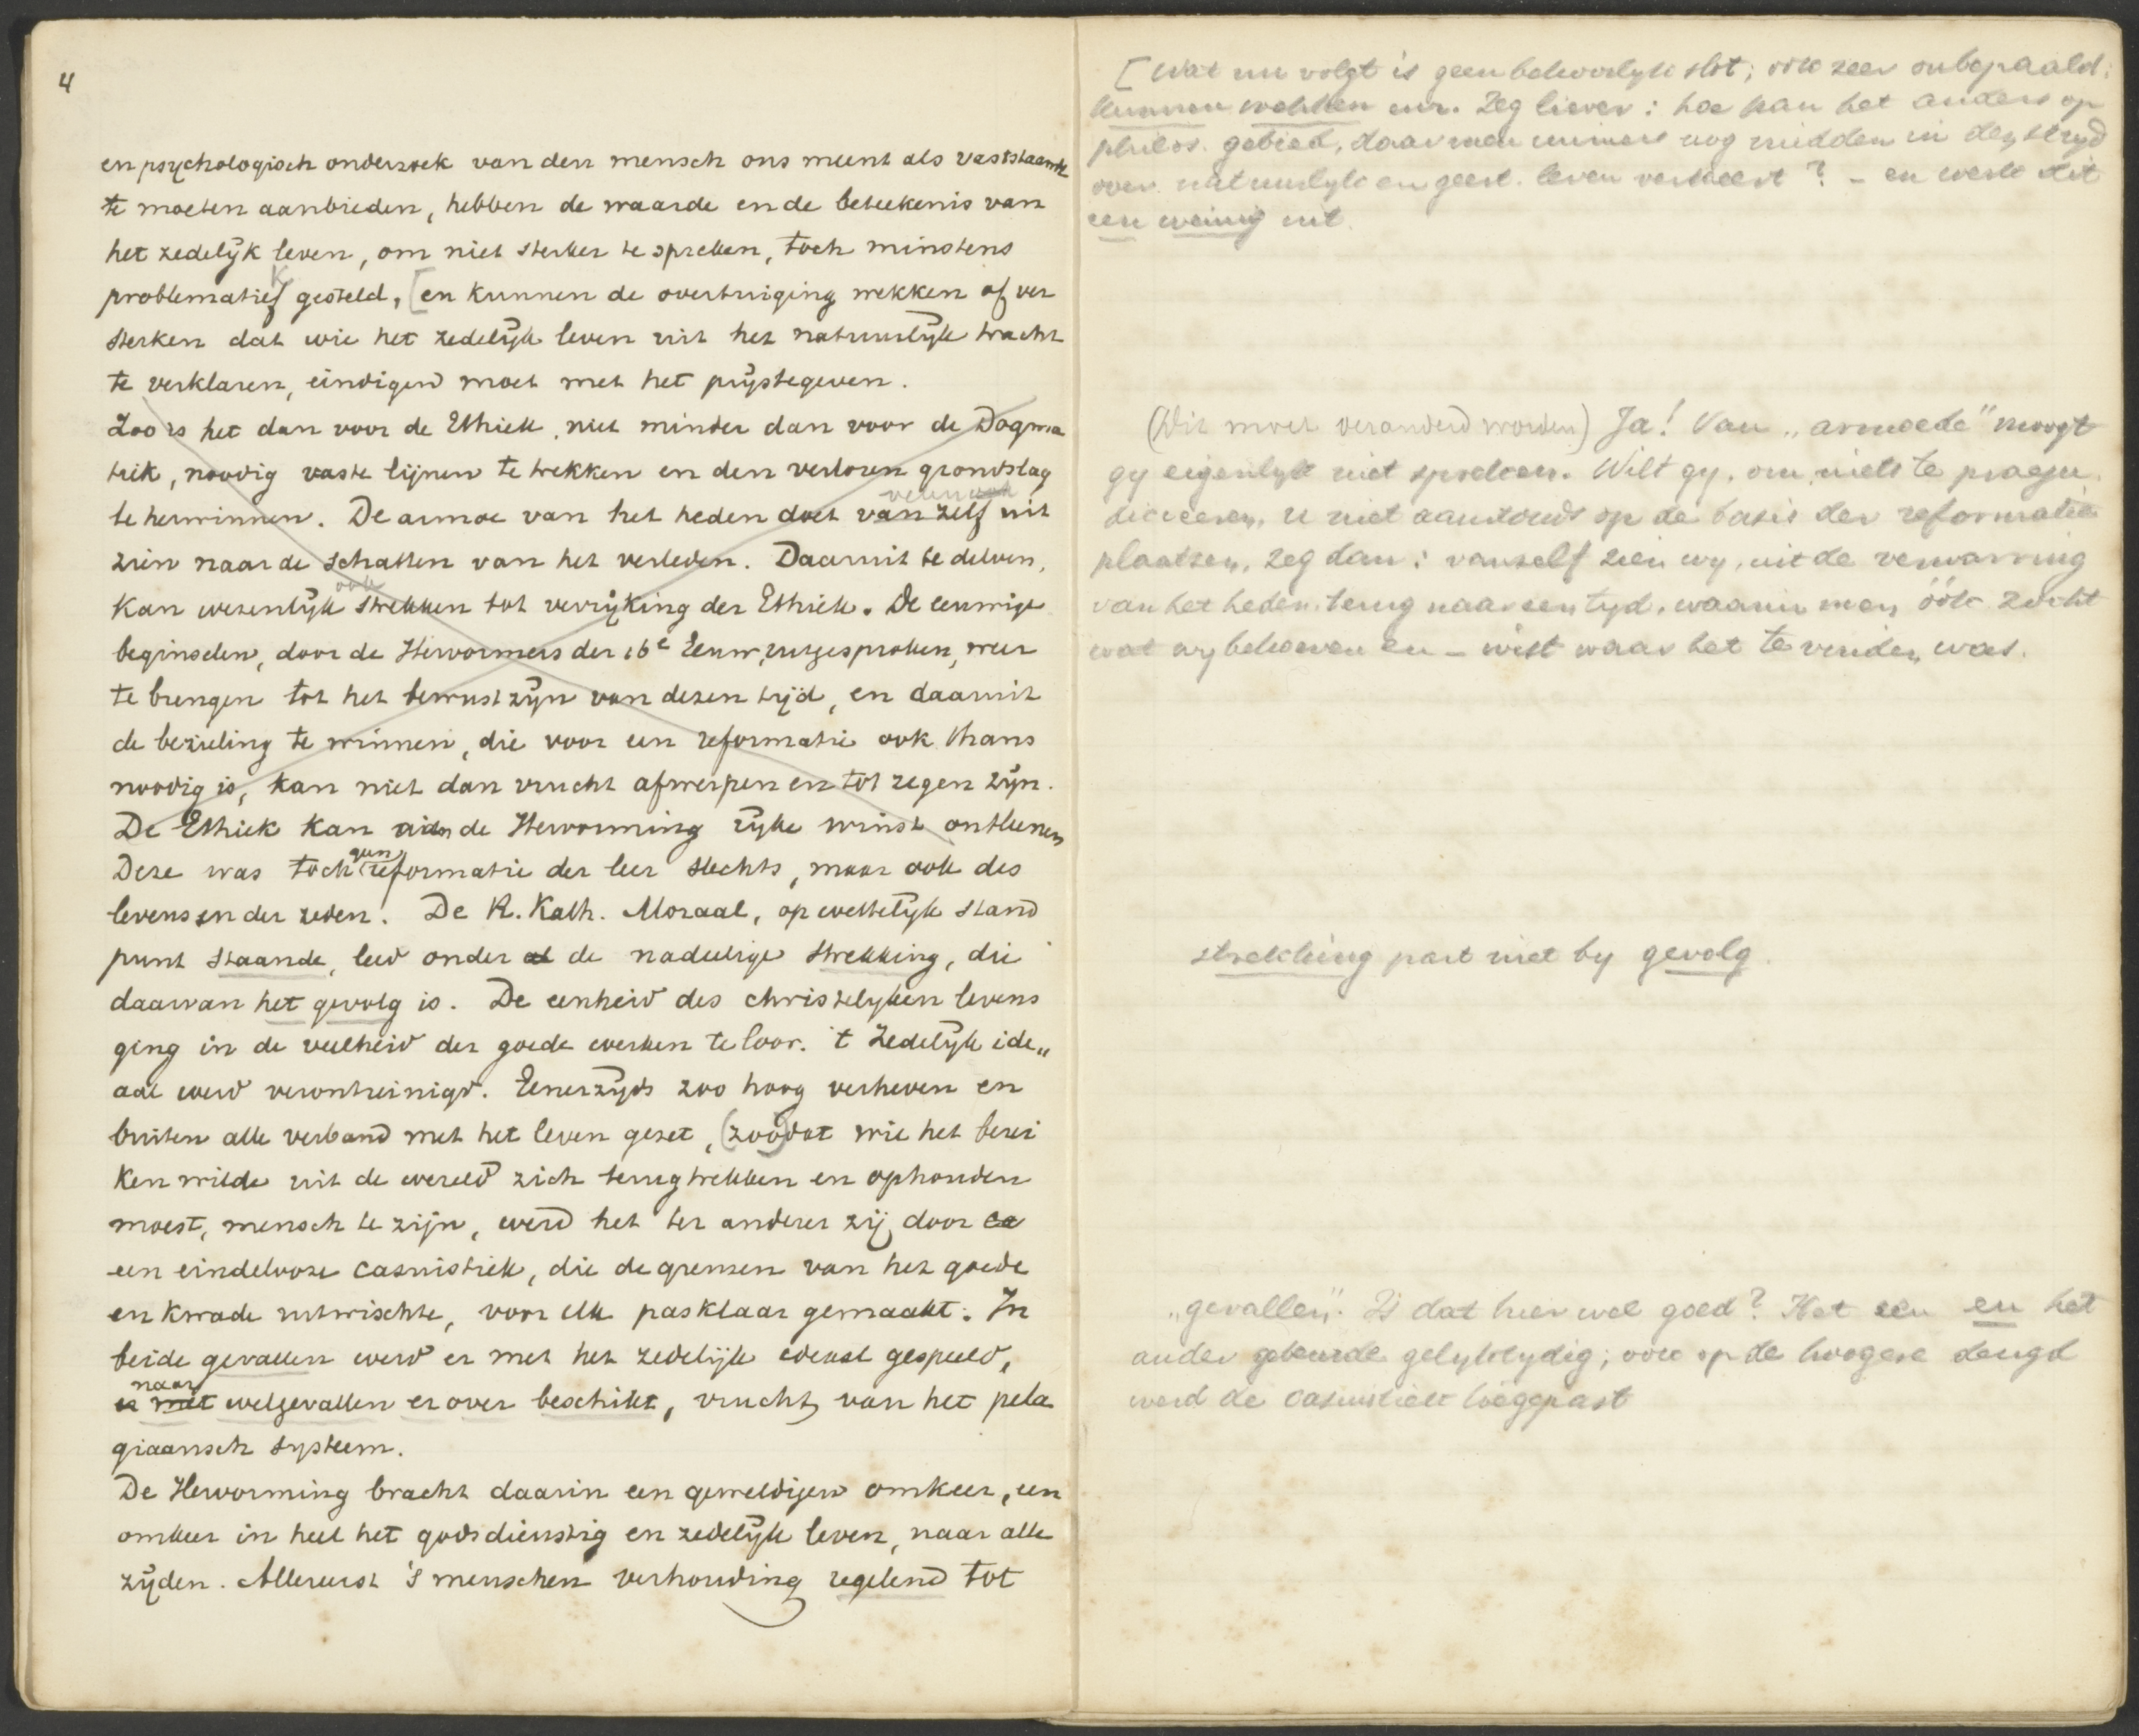 4
en psychologisch onderzoek van den mensch ons meent als vaststaande
te moeten aanbieden, hebben de waarde en de beteekenis van
het zedelijk leven, om niet sterker te spreken, toch minstens
problematiek gesteld, [en kunnen de overtuiging wekken of ver
sterken dat wie het zedelijk leven uit het natuurlijke tracht
te verklaren, eindigen moet met het prijstegeven.
Zoo is het dan voor de Ethiek, niet minder dan voor de Dogma
tiek, noodig vaste lijnen te trekken en den verloren grondslag
te herwinnen. De armoe van het heden doet van zelf uit
zien naar de schatten van het verleden. Daaruit te delven,
ook
kan wezenlijk strekken tot verrijking der Ethiek. De eeuwige
beginselen, door de Hervormers der 16e Eeuw, uitgesproken, weer
te brengen tot het bewustzijn van dezen tijd, en daaruit
de bezieling te winnen, die voor een reformatie ook thans
noodig is, kan niet dan vrucht afwerpen en tot zegen zijn.
De Ethiek kan aan de Hervorming rijke winst ontleenen
geen
Deze was toch reformatie der leer slechts, maar ook des
levens en der zeden. De R. Kath. Moraal, op wettelijk stand
punt staande, leed onder al de nadeelige strekking, die
daarvan het gevolg is. De eenheid des christelyken levens
ging in de veelheid der goede werken te loor. 't Zedelijk ide„
aal werd verontreinigd. Eenerzijds zoo hoog verheven en
buiten alle verband met het leven gezet, (zoo)dat wie het berei
ken wilde uit de wereld zich terugtrekken en ophouden
moest, mensch te zijn, werd het ter anderer zij door ca
een eindelooze casuistiek, die de grenzen van het goede
en kwade uitwischte, voor elk pasklaar gemaakt. In
beide gevallen werd er met het zedelijk ideaal gespeeld,
naar
is met welgevallen er over beschikt, vrucht van het pela
giaansch systeem.
De Hervorming bracht daarin een geweldigen omkeer, een
omkeer in heel het godsdienstig en zedelijk leven, naar alle
zijden. Allereerst 's menschen verhouding regelend tot
[Wat nu volgt is geen behoorlyk slot; ook zeer onbepaald:
kunnen wekken enz. Zeg liever: hoe kan het anders op
philos. gebied, daar men immers nog midden in den stryd
over natuurlyk en geest. leven verkeert? – en werk dit
een weinig uit.
(Dit moet veranderd worden) Ja! Van „armoede" moogt
gy eigenlyk niet spreken. Wilt gy, om niets te praeju
dicieeren, u niet aanstonds op de basis der reformatie
plaatsen, zeg dan: vanzelf zien wy, uit de verwarring
van het heden, terug naar een tyd, waarin men óók zocht
wat wy behoeven en – wist waar het te vinden was.
strekking past niet by gevolg.
„gevallen". Is dat hier wel goed? Het een en het
ander gebeurde gelyktydig; ook op de hoogere deugd
werd de casuistiek toegepast